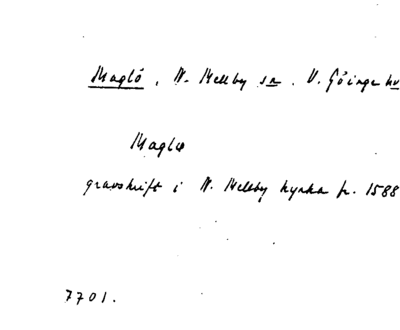 Magló, N. Mellby sn. V. Göinge hd
Maglø
gravskrift i N. Mellby kyrka fr. 1588
7701.